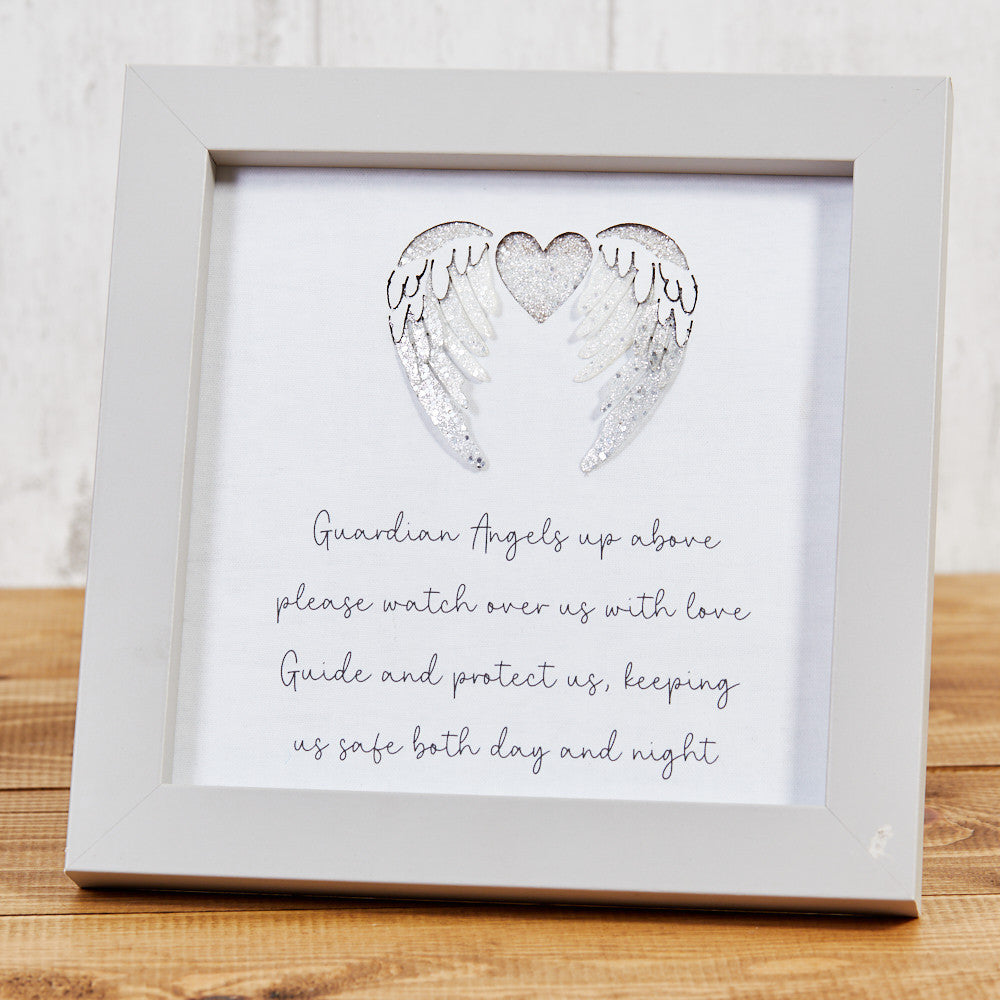 Guardian Angels up above
please watch over us with love
Guide and protect us, keeping
us safe both day and night